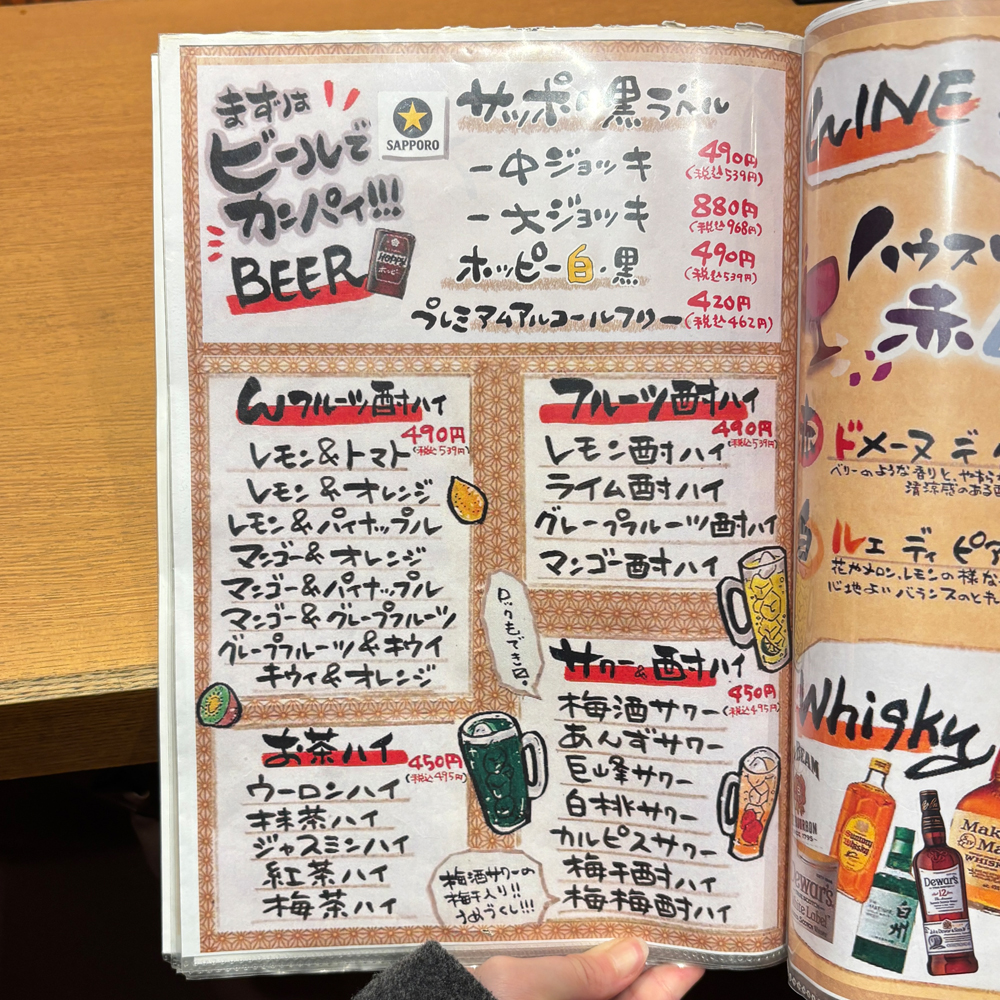 まずは
ビールで
カンパイ!!!
BEER
SAPPORO
HOPPY
ホッピー
サッポロ黒ラベル
一中ジョッキ
490円
(税込539円)
一大ジョッキ
880円
(税込968円)
ホッピー白・黒
490円
(税込539円)
プレミアムアルコールフリー
420円
(税込462円)
Wフルーツ酎ハイ
490円
(税込539円)
レモン&トマト
レモン&オレンジ
レモン&パイナップル
マンゴー&オレンジ
マンゴー&パイナップル
マンゴー&グレープフルーツ
グレープフルーツ&キウイ
キウィ&オレンジ
お茶ハイ
450円
(税込495円)
ウーロンハイ
抹茶ハイ
ジャスミンハイ
紅茶ハイ
梅茶ハイ
フルーツ酎ハイ
490円
(税込539円)
レモン酎ハイ
ライム酎ハイ
グレープフルーツ酎ハイ
マンゴー酎ハイ
ロックもできる。
サワー&酎ハイ
450円
(税込495円)
梅酒サワー
あんずサワー
巨峰サワー
白桃サワー
カルピスサワー
梅干酎ハイ
梅梅酎ハイ
梅酒サワーの
梅干入り!!
うめづくし!!!
WINE
ハウスワ
赤
ドメーヌ デ
ベリーのような香りと、やわら
清涼感のある
白
ルェ ディ ピア
花やメロン、レモンの様な
心地よい バランスのとれた
Whisky
BEAM
BOURBON
Suntory
Whisky
Dewar's
White Label
白州
Dewar's
12
Make
Ma
WHISK